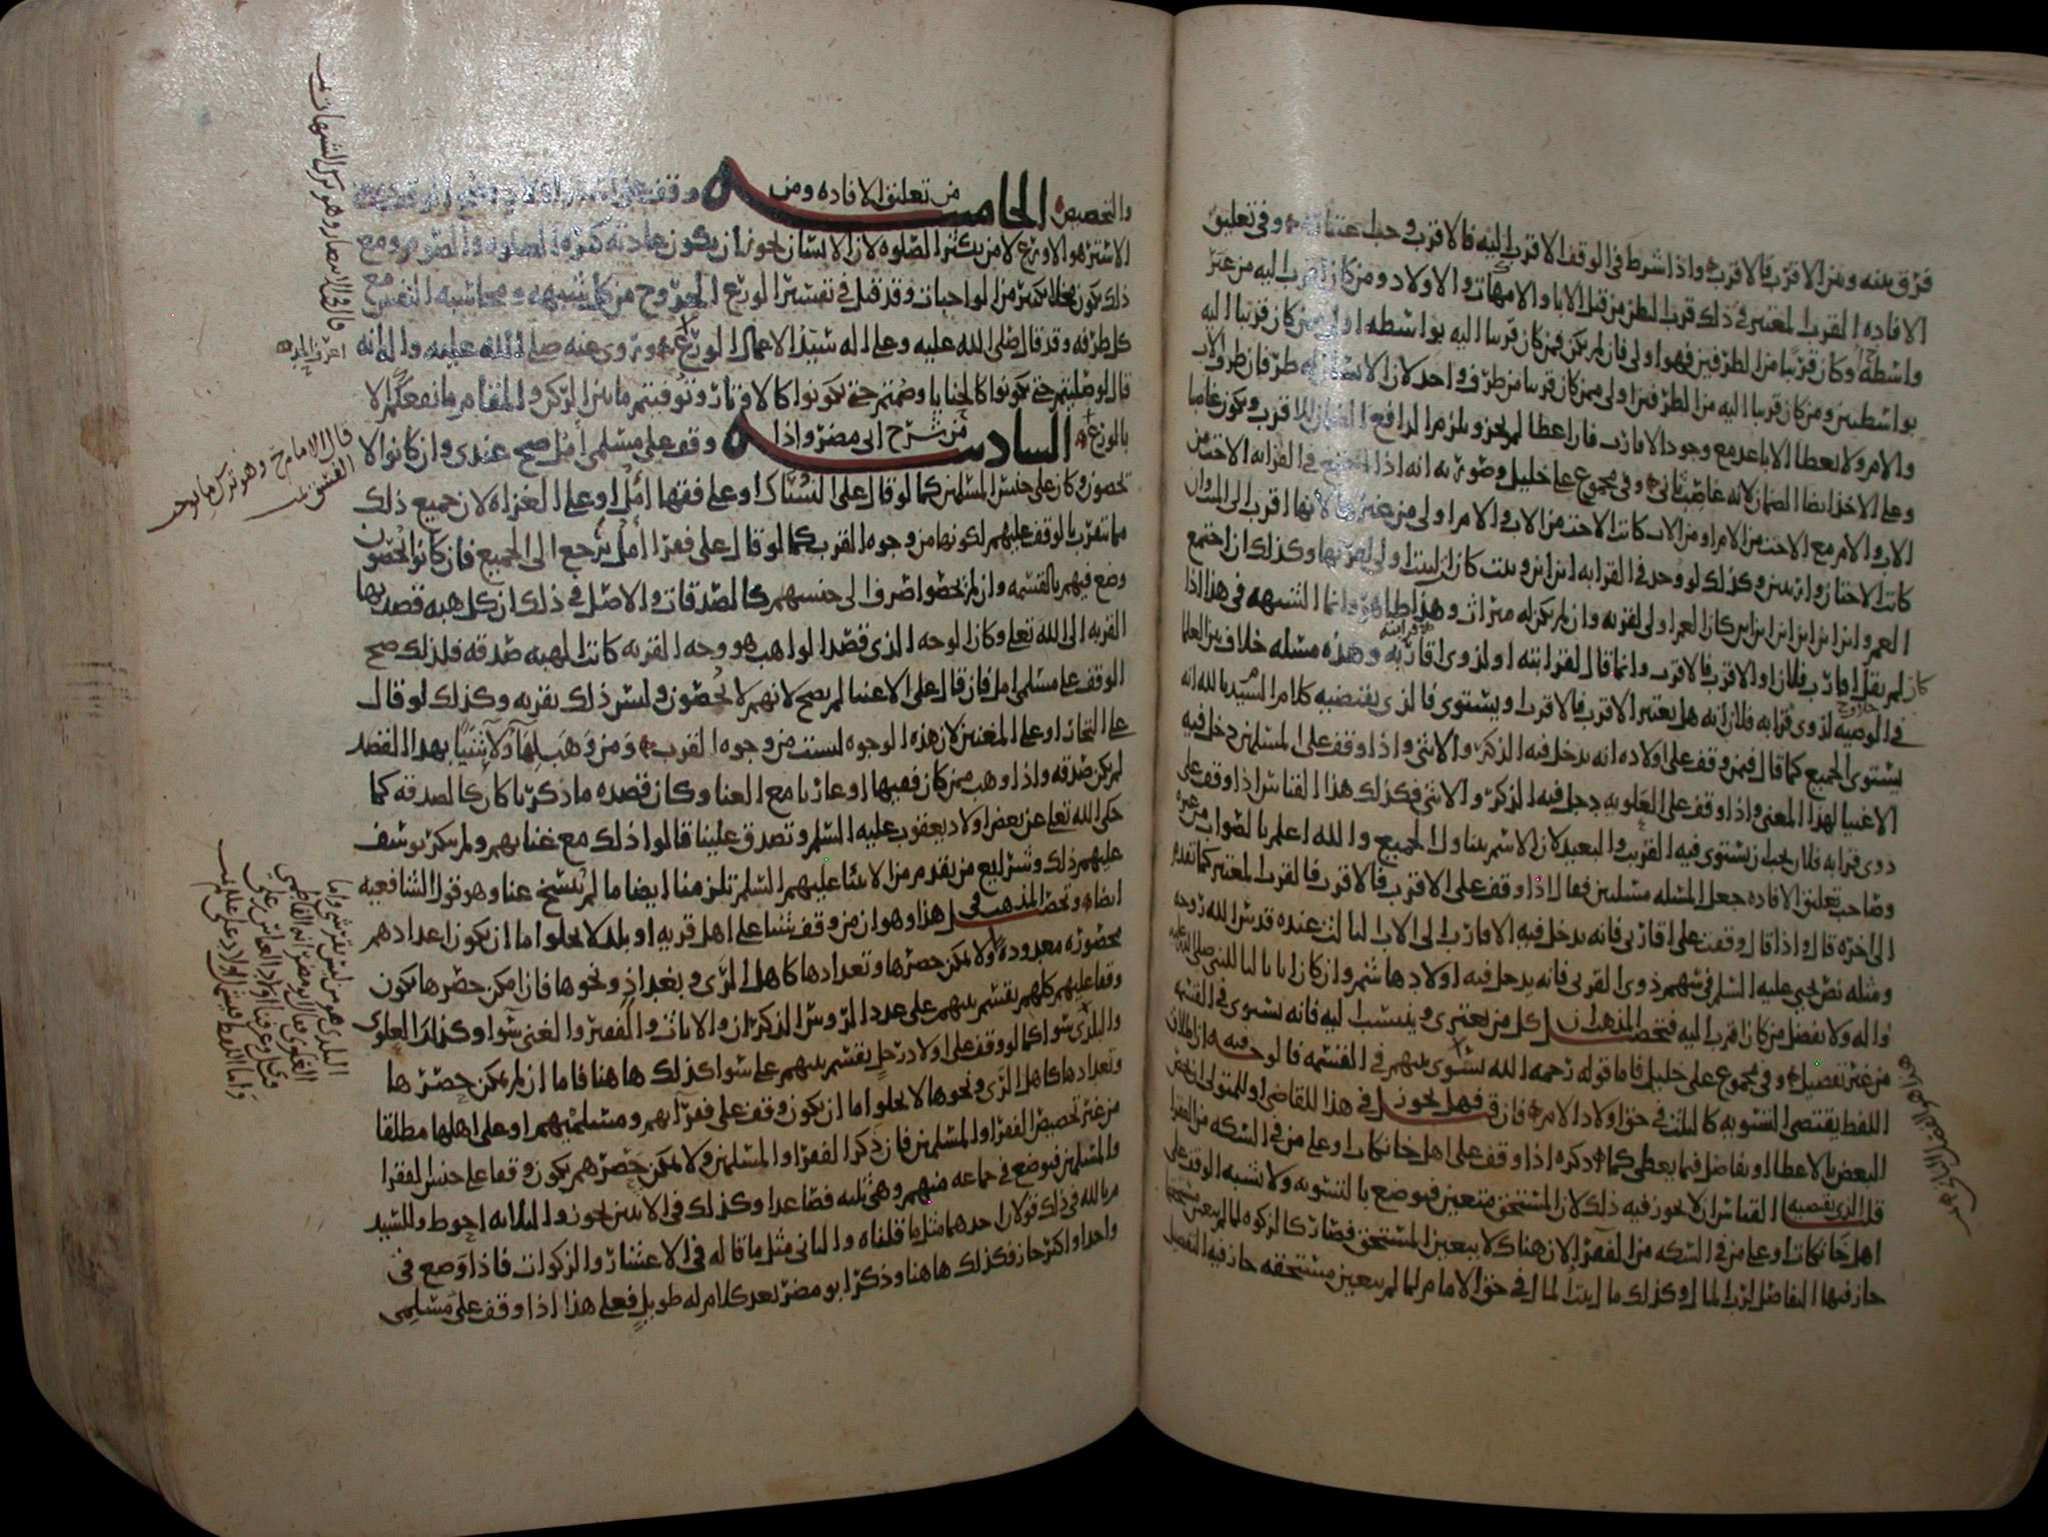 فرق بينه وبين الاقرب فالاقرب واذا شرط في الوقف الاقرب اليه فالاقرب وجب اعتباره وفي تعليق
الافاده القرب المعتبر في ذلك قرب الطرفين من قبل الابا والامهات والاولاد ومن كان اقرب اليه من غير
واسطه وكان قريبا من الطرفين فهو اولى فان لم يكن فمن كان قريبا اليه بواسطه اولى ممن كان قريبا اليه
بواسطتين ومن كان قريبا اليه من الطرفين اولى ممن كان قريبا من طرف واحد لان الانسان له طرفان طرف الاب
والام ولا يعطا الاباعد مع وجود الاقارب فان اعطا لم يجز ويلزم الدافع الضمان للاقرب ويكون غاصبا
وعلى الاخذ ايضا الضمان لانه غاصب ثاني وفي مجموع علي خليل وصورته انه اذا اجتمع في القرابه الاخت من
الاب والام مع الاخت من الام او من الاب كانت الاخت من الاب والام اولى من غيرها لانها اقرب الى الميت وان
كانت الاختان وارثتين وكذلك لو وجد في القرابه ابن ابن وبنت كان البنت اولى لقربها وكذلك ان اجتمع
العم وابن ابن ابن ابن كان العم اولى لقربه وان لم يكن له ميراث وهذا ظاهر وانما الشبهه في هذا اذا
كان لم يقل اقارب فلان او الاقرب فالاقرب وانما قال لقرابته او لذوي اقاربه وهذه مسئله خلاف بين العلما
في الوصيه لذوي قرابه فلان انه هل يعتبر الاقرب فالاقرب او يستوي فالذي يقتضيه كلام السيد بالله انه
يستوي الجميع كما قال فيمن وقف على اولاده انه يدخل فيه الذكر والانثى واذا وقف على المسلمين دخل فيه
الاغنيا لهذا المعنى واذا وقف على العلويه دخل فيه الذكر والانثى فكذلك هذا القياس اذا وقف على
ذوي قرابه فلان يجب ان يستوي فيه القريب والبعيد لان الاسم يتناول الجميع والله اعلم بالصواب
وصاحب تعليق الافاده جعل المسئله مسئلتين فقال اذا وقف على الاقرب فالاقرب فالقرب المعتبر كما تقدم
الى اخره قال واذا قال وقفت على اقاربي فانه يدخل فيه الاقارب الى الاب الثالث عنده قدس الله روحه
ومثله نص يحيى عليه السلم في سهم ذوي القربى فانه يدخل فيه اولاد هاشم وان كان ابا ثالثا للنبي صلى الله عليه
واله ولا يفضل من كان اقرب اليه فتحصل المذهب ان كل من يعتزي وينتسب اليه فانه يستوي في القسمه
من غير تفصيل وفي مجموع علي خليل فاما قوله رحمه الله يسوي بينهم في القسمه فالوجه فيه ان اطلاق
اللفظ يقتضي التسويه كالثلث في حق اولاد الام فان قيل فهل يجوز في هذا للقاضي او للمتولي ان يخص
البعض بالاعطا او يفاضل فيما يعطي كما ذكره اذا وقف على اهل خانكات او على من في السكه من الفقرا
قلنا الذي يقتضيه القياس ان لا يجوز فيه ذلك لان المستحق متعين فيوضع بالتسويه ولا يشبه الوقف على
اهل خانكات او على من في السكه من الفقرا لان هناك لا يتعين المستحق فصار كالزكوه لما لم يتعين مستحقها
جاز فيها التفاضل لرب المال وكذلك مال بيت المال في حق الامام لما لم يتعين مستحقه جاز فيه التفضيل
والتخصيص الخامسه من تعليق الافاده ومن وقف على
الاستر هو الاورع لا من يكثر الصلوه لان الانسان يجوز ان يكون عادته كثره الصلوه والصوم ومع
ذلك يكون مخلا بكثير من الواجبات وقد قيل في تفسير الورع الخروج من كل شبهه ومحاسبه النفس مع
كل طرفه وقد قال صلى الله عليه وعلى اله سيد الاعمال الورع وروي عنه صلى الله عليه واله انه
قال لو صليتم حتى تكونوا كالحنايا وصمتم حتى تكونوا كالاوتار وتوفيتم ما بين الركن والمقام ما نفعكم الا
بالورع السادسه من شرح ابي مضر واذا وقف على مسلمي امل صح عندي وان كانوا لا
يحصون وكان على جنس المسلمين كما لو قال على النساك او على فقها امل او على الغزاه لان جميع ذلك
مما يتقرب بالوقف عليهم لكونها من وجوه القرب كما لو قال على فقرا امل يرجع الى الجميع فان كانوا يحصون
وضع فيهم بالقسمه وان لم يحصوا صرف الى جنسهم كالصدقات والاصل في ذلك ان كل هبه قصد بها
القربه الى الله تعلى وكان الوجه الذي قصد الواهب هو وجه القربه كانت الهبه صدقه فلذلك صح
الوقف على مسلمي امل فان قال على الاغنيا لم يصح لانهم لا يحصون وليس ذلك بقربه وكذلك لو قال
على التجار او على المغنين لان هذه الوجوه ليست من وجوه القرب ومن وهب بهذا القصد
لم يكن صدقه واذا وهب ممن كان فقيها او غازيا مع الغنا وكان قصده ما ذكرنا كان كالصدقه كما
حكى الله تعلى عن بعض اولاد يعقوب عليه السلم وتصدق علينا قالوا ذلك مع غناهم ولم ينكر يوسف
عليهم ذلك وشرايع من تقدم من الانبيا عليهم السلم تلزمنا ايضا ما لم تنسخ عنا وهو قول الشافعيه
ايضا وتحصيل المذهب في هذا وهو ان من وقف شيئا على اهل قريه او بلد لا يخلوا اما ان يكون اعدادهم
محصوره معدوده او لا يمكن حصرها وتعدادها كاهل الري وبغداد ونحوها فان امكن حصرها يكون
وقفا عليهم كلهم يقسم بينهم على عدد الروس الذكران والاناث والفقير والغني سوا وكذلك العلوي
والبلدي سوا كما لو وقف على اولاد رجل يقسم بينهم على سوا كذلك هاهنا فاما ان لم يمكن حصرها
وتعدادها كاهل الري ونحوها لا يخلوا اما ان يكون وقف على فقرائهم ومسلميهم او على اهلها مطلقا
من غير تخصيص الفقرا والمسلمين فان ذكر الفقرا والمسلمين ولا يمكن حصرهم يكون وقفا على جنس الفقرا
والمسلمين فيوضع في جماعه منهم وهي ثلثه فصاعدا وكذلك في الاثنين يجوز والثلاثه احوط وللسيد
م بالله في ذلك قولان احدهما مثل ما قلناه والثاني مثل ما قاله في الاعشار والزكوات فاذا وضع في
واحد او اكثر جاز فكذلك هاهنا وذكر ابو مضر بعد كلام له طويل فعلى هذا اذا وقف على مسلمي
قال في الانتصار وهو ترك الشبهات
قال الامام ح وهو ترك ما يوجب
الفسق